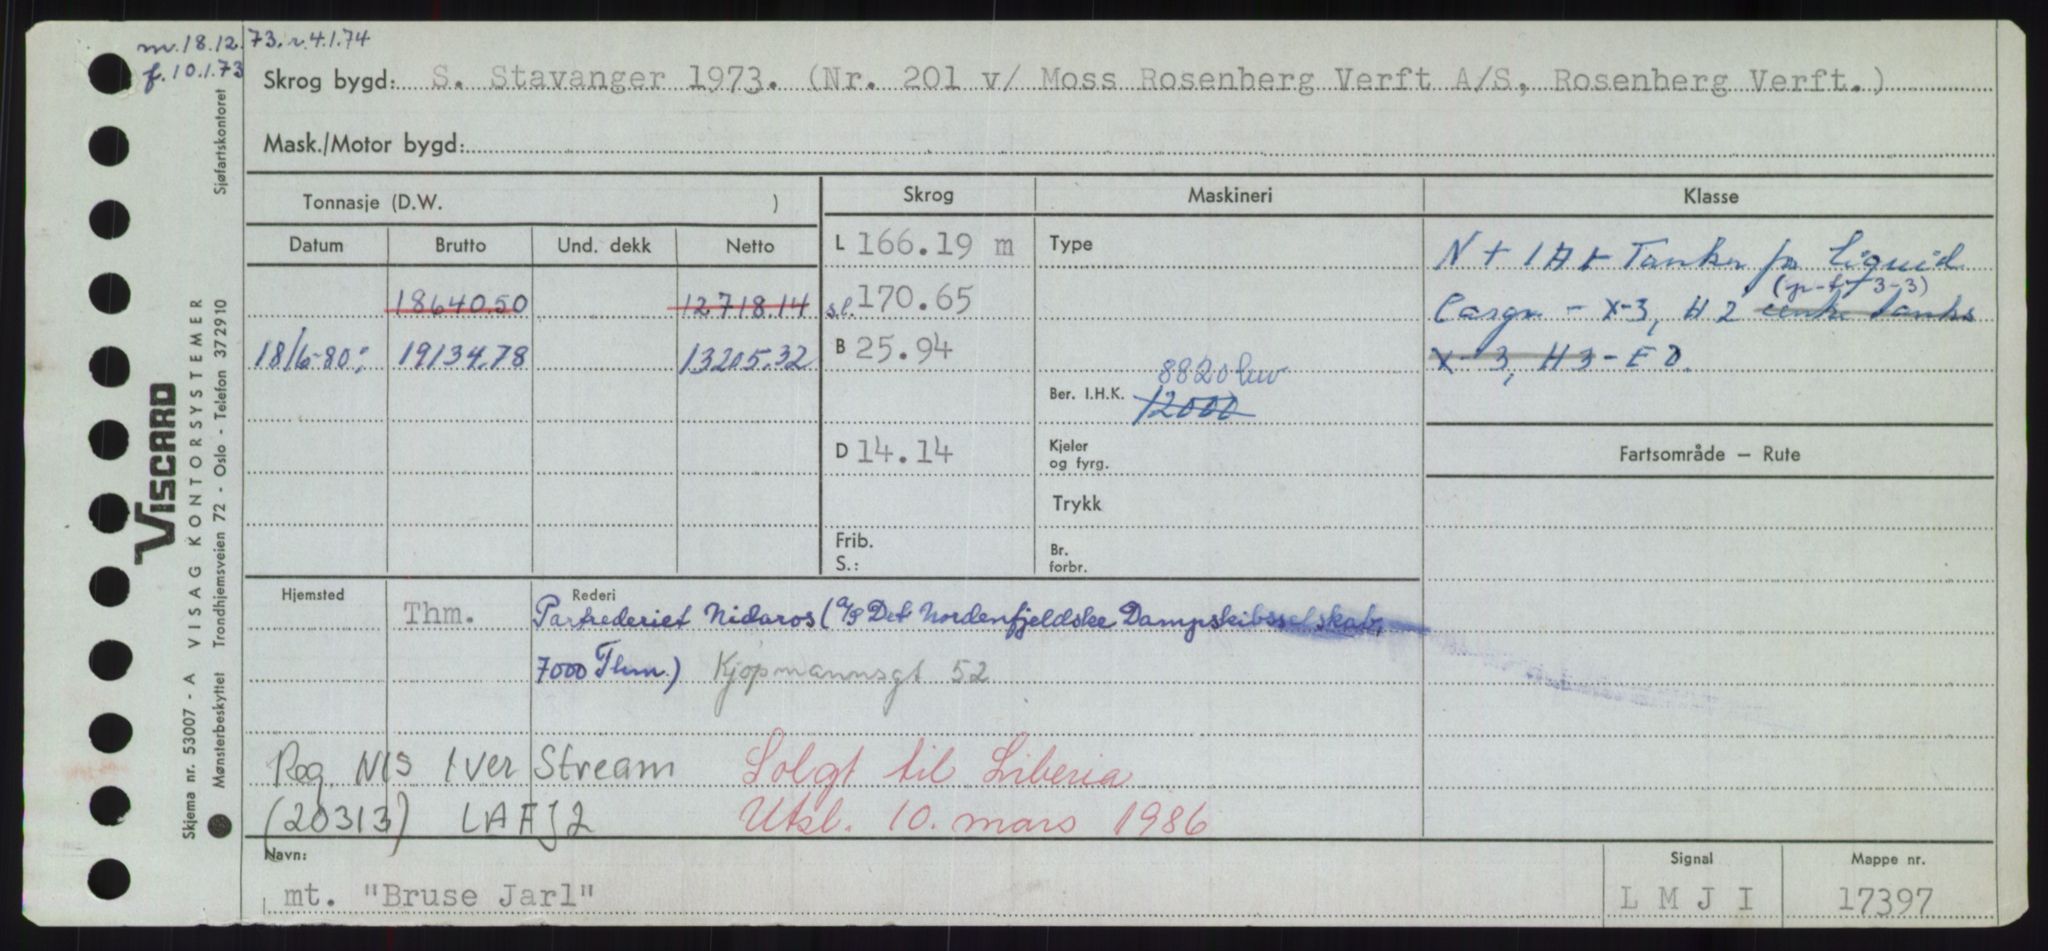 m. 18.12.73. r. 4.1.74
f. 10.1.73
Skrog bygd: S. Stavanger 1973. (Nr. 201 v/ Moss Rosenberg Verft A/S, Rosenberg Verft.)
Mask./Motor bygd:
Tonnasje (D.W. )
Skrog
Maskineri
Klasse
Datum Brutto Und. dekk Netto
L 166.19 m
Type
N + 1A + Tanker for Liquid
18640.50 12718.14
sl. 170.65
(p-t-t 3-3)
Cargo - X-3, H 2 centre tanks
18/6-80: 19134.78 13205.32
B 25.94
X-3, H3 - EO.
8820 hw
Ber. I.H.K. 12000
D 14.14
Kjeler
og fyrg.
Fartsområde – Rute
Trykk
Frib.
S.:
Br.
forbr.
Hjemsted
Rederi
Thm. Partrederiet Nidaros (A/S Det Nordenfjeldske Dampskibsselskab,
7000 Thm.) Kjøpmannsgt 52
Reg. NIS Iver Stream Solgt til Liberia
(20313) LAFJ2 Utsl. 10. mars 1986
Navn:
Signal
Mappe nr.
mt. "Bruse Jarl"
L M J I
17397
VISCARD
Skjema nr. 53007 - A VISAG KONTORSYSTEMER
Mønsterbeskyttet Trondhjemsveien 72 - Oslo - Telefon 372910
Sjøfartskontoret